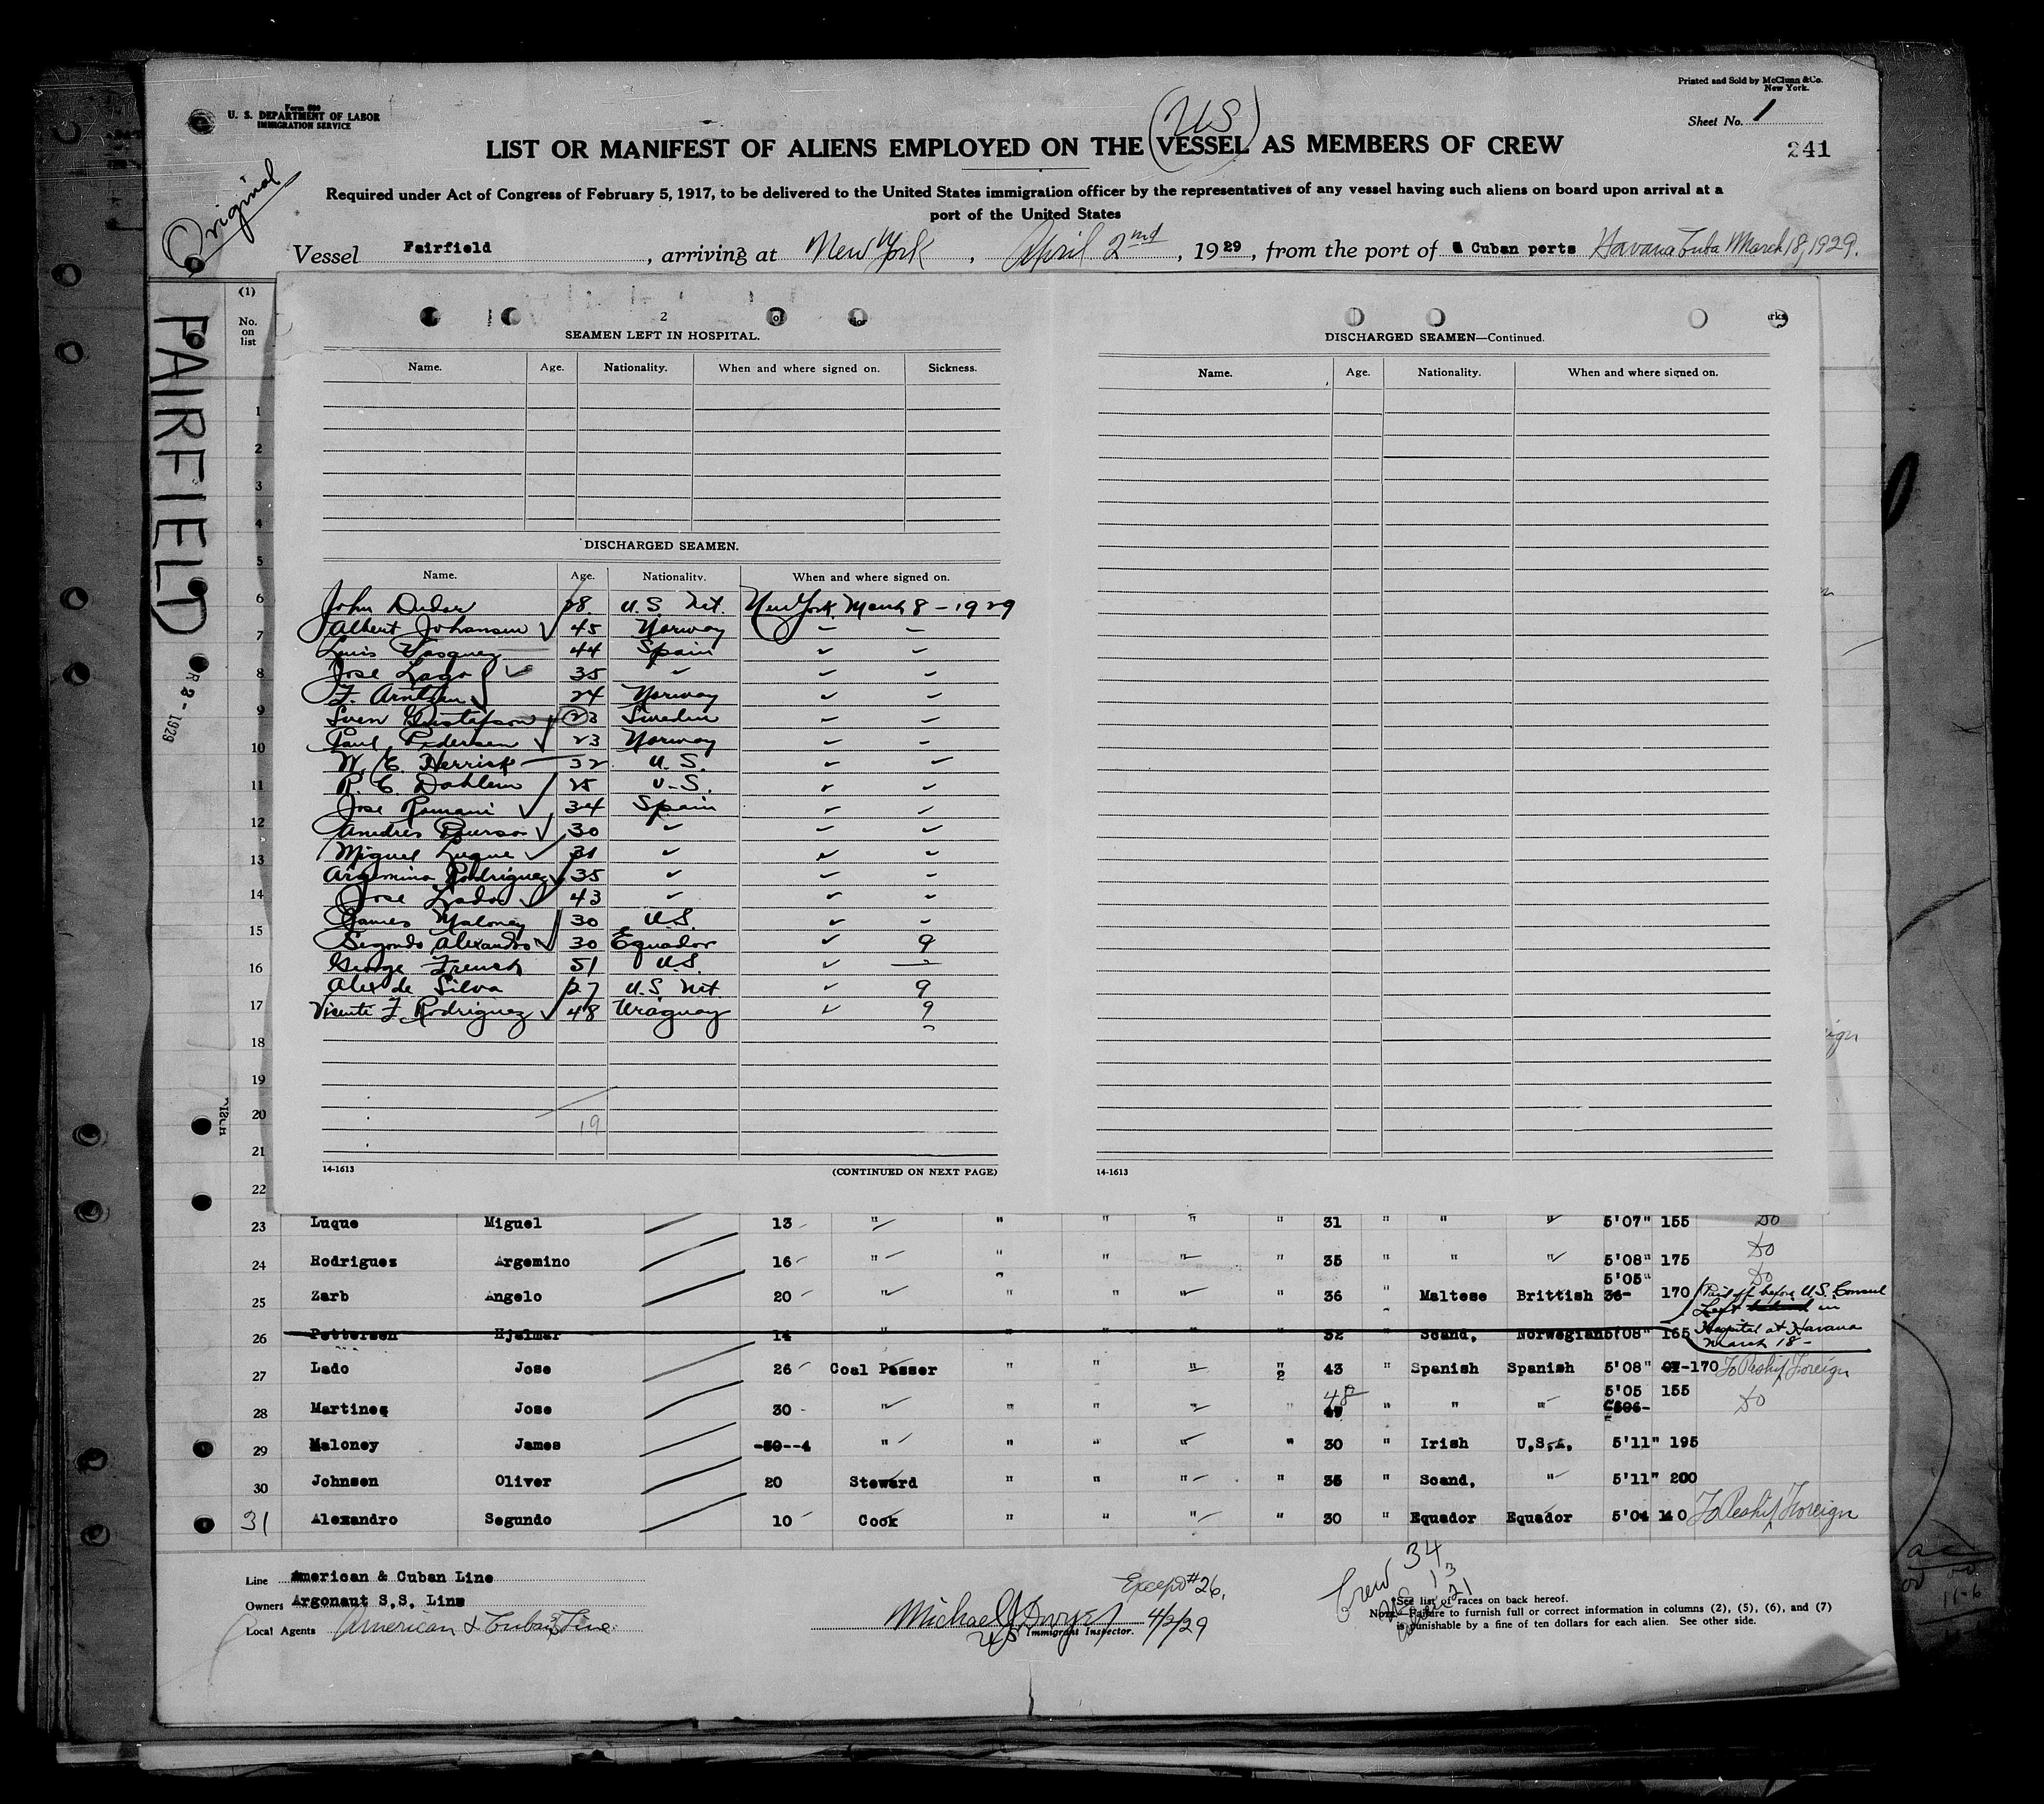 Printed and Sold by McClunn & Co.
New York.
Form 689
U. S. DEPARTMENT OF LABOR
IMMIGRATION SERVICE
Sheet No. 1
US
LIST OR MANIFEST OF ALIENS EMPLOYED ON THE VESSEL AS MEMBERS OF CREW
241
Original
Required under Act of Congress of February 5, 1917, to be delivered to the United States immigration officer by the representatives of any vessel having such aliens on board upon arrival at a
port of the United States
Vessel Fairfield, arriving at New York, April 2nd, 1929, from the port of Cuban ports Havana Cuba March 18, 1929.
FAIRFIELD
R 2 - 1929
(1)
No. on list
2
SEAMEN LEFT IN HOSPITAL.
Name. Age. Nationality. When and where signed on. Sickness.
DISCHARGED SEAMEN.
Name. Age. Nationality. When and where signed on.
John Dudar 28. U.S. Nat. New York March 8 - 1929
Albert Johansen 45 Norway
Luis Vasquez 44 Spain
Jose Lago 35 "
F. Arntsen 24 Norway
Sven Gustafson 23 Sweden
Paul Pedersen 23 Norway
W. E. Herrick 32 U.S.
R. C. Dahlem 25 U.S.
Jose Romani 34 Spain
Andres 30 "
Miguel Luque 31 "
Argemino Rodriguez 35 "
Jose Lado 43 "
James Maloney 30 U.S.
Segondo Alexandro 30 Equador 9
George French 51 U.S.
Alex de Silva 27 U.S. Nat. 9
Vicente F. Rodriguez 48 Uraguay 9
19
14-1613 (CONTINUED ON NEXT PAGE)
DISCHARGED SEAMEN—Continued.
Name. Age. Nationality. When and where signed on.
14-1613
1
2
3
4
5
6
7
8
9
10
11
12
13
14
15
16
17
18
19
20
21
22
23 Luque Miguel 13 " " " " " 31 " " " 5'07" 155 Do
24 Rodriguez Argemino 16 " " " " " 35 " " " 5'08" 175 Do
25 Zarb Angelo 20 " " " " " 36 " Maltese Brittish 5'05" 36- 170 Do
Paid off before U.S. Consul
Left behind in
Hospital at Havana
March 18-
26 Pettersen Hjalmar 14 " " " " " 32 " Scand, Norwegian 5'08" 165
27 Lado Jose 26 Coal Passer " " " " 2 43 " Spanish Spanish 5'08" 170 To Reship Foreign
28 Martinez Jose 30 " " " " " 48 " " " 5'05 155 Do
29 Maloney James -30--4 " " " " " 30 " Irish U.S.A. 5'11" 195
30 Johnsen Oliver 20 Steward " " " " 35 " Scand, " 5'11" 200
31 Alexandro Segundo 10 Cook " " " " 30 " Equador Equador 5'04 140 To Reship Foreign
Line American & Cuban Line
Owners Argonaut S.S. Line
Local Agents American & Cuban Line
Except #26.
Michael J Dwyer 4/2/29
US Immigrant Inspector.
Crew 34
US 13
Aliens 21
*See list of races on back hereof.
Note.—Failure to furnish full or correct information in columns (2), (5), (6), and (7)
is punishable by a fine of ten dollars for each alien. See other side.
11-6